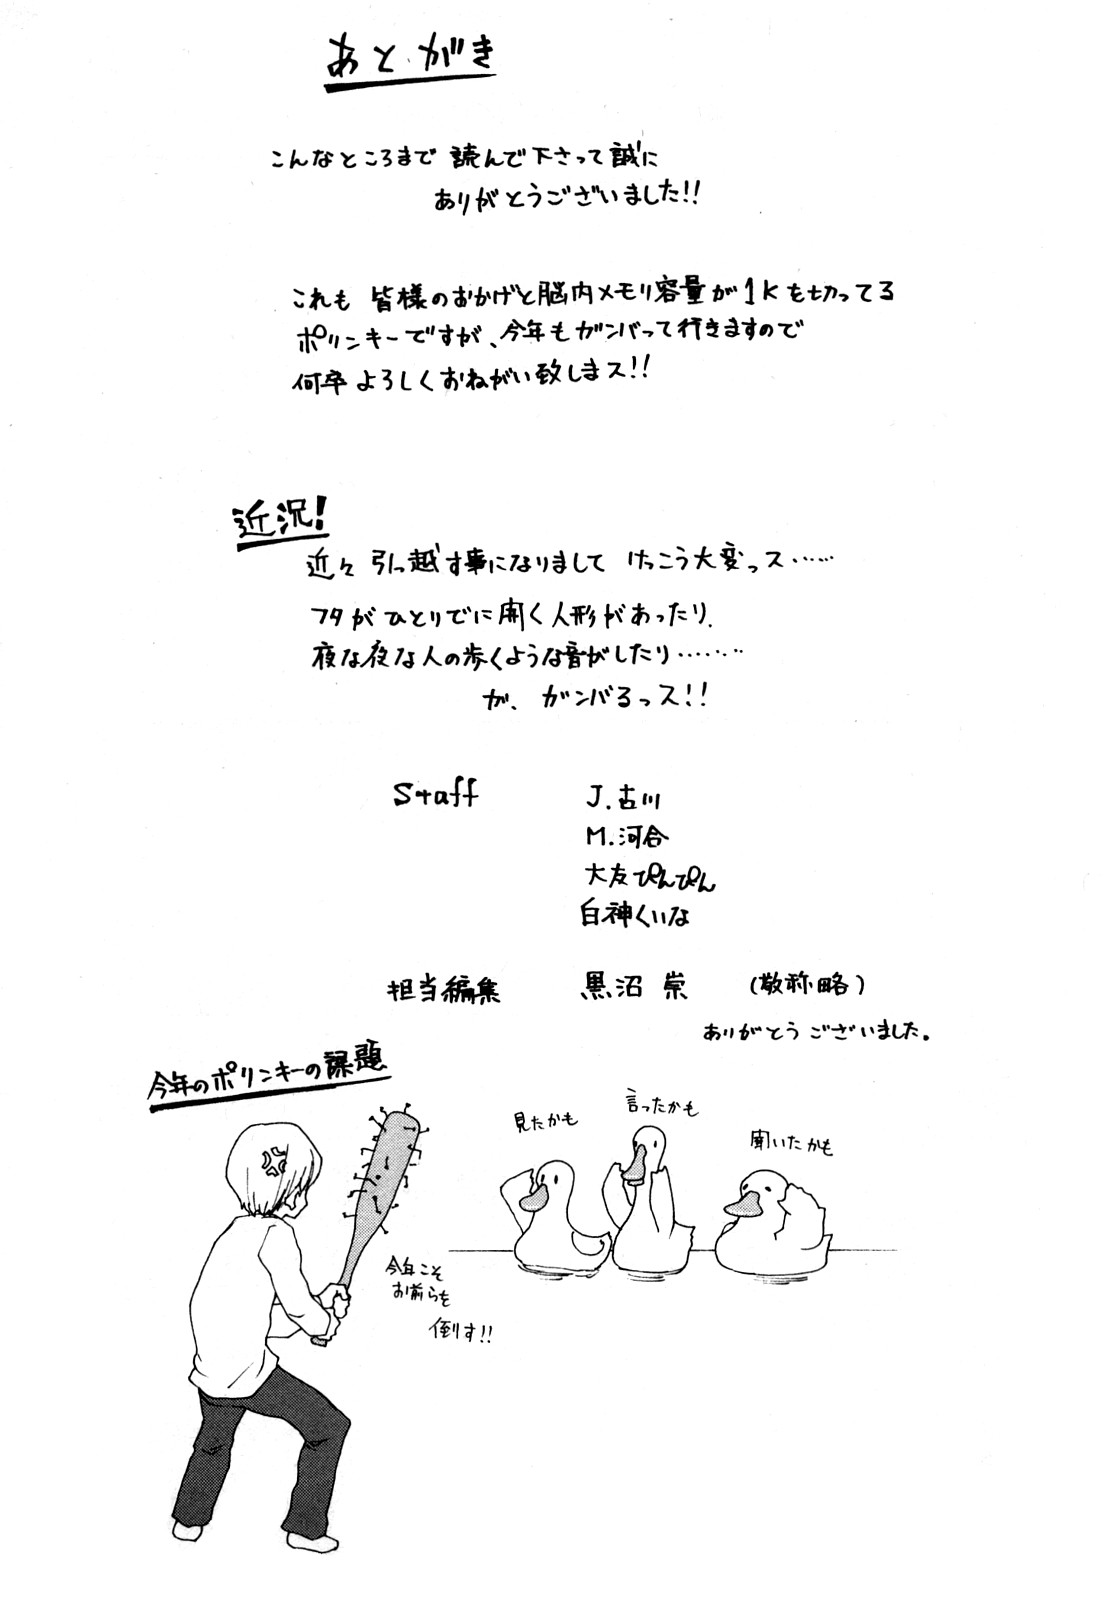 あとがき
こんなところまで 読んで下さって誠に
ありがとうございました!!
これも 皆様のおかげと脳内メモリ容量が1Kを切ってる
ポリンキーですが、今年もガンバって行きますので
何卒よろしくおねがい致しまス!!
近況!
近々 引っ越す事になりまして けっこう大変っス……
フタがひとりでに開く人形があったり、
夜な夜な人の歩くような音がしたり………
が、ガンバるっス!!
Staff
J.古川
M.河合
大友ぴんぴん
白神くいな
担当編集 黒沼 崇 (敬称略)
ありがとうございました。
今年のポリンキーの課題
見たかも
言ったかも
聞いたかも
今年こそ
お前らを
倒す!!